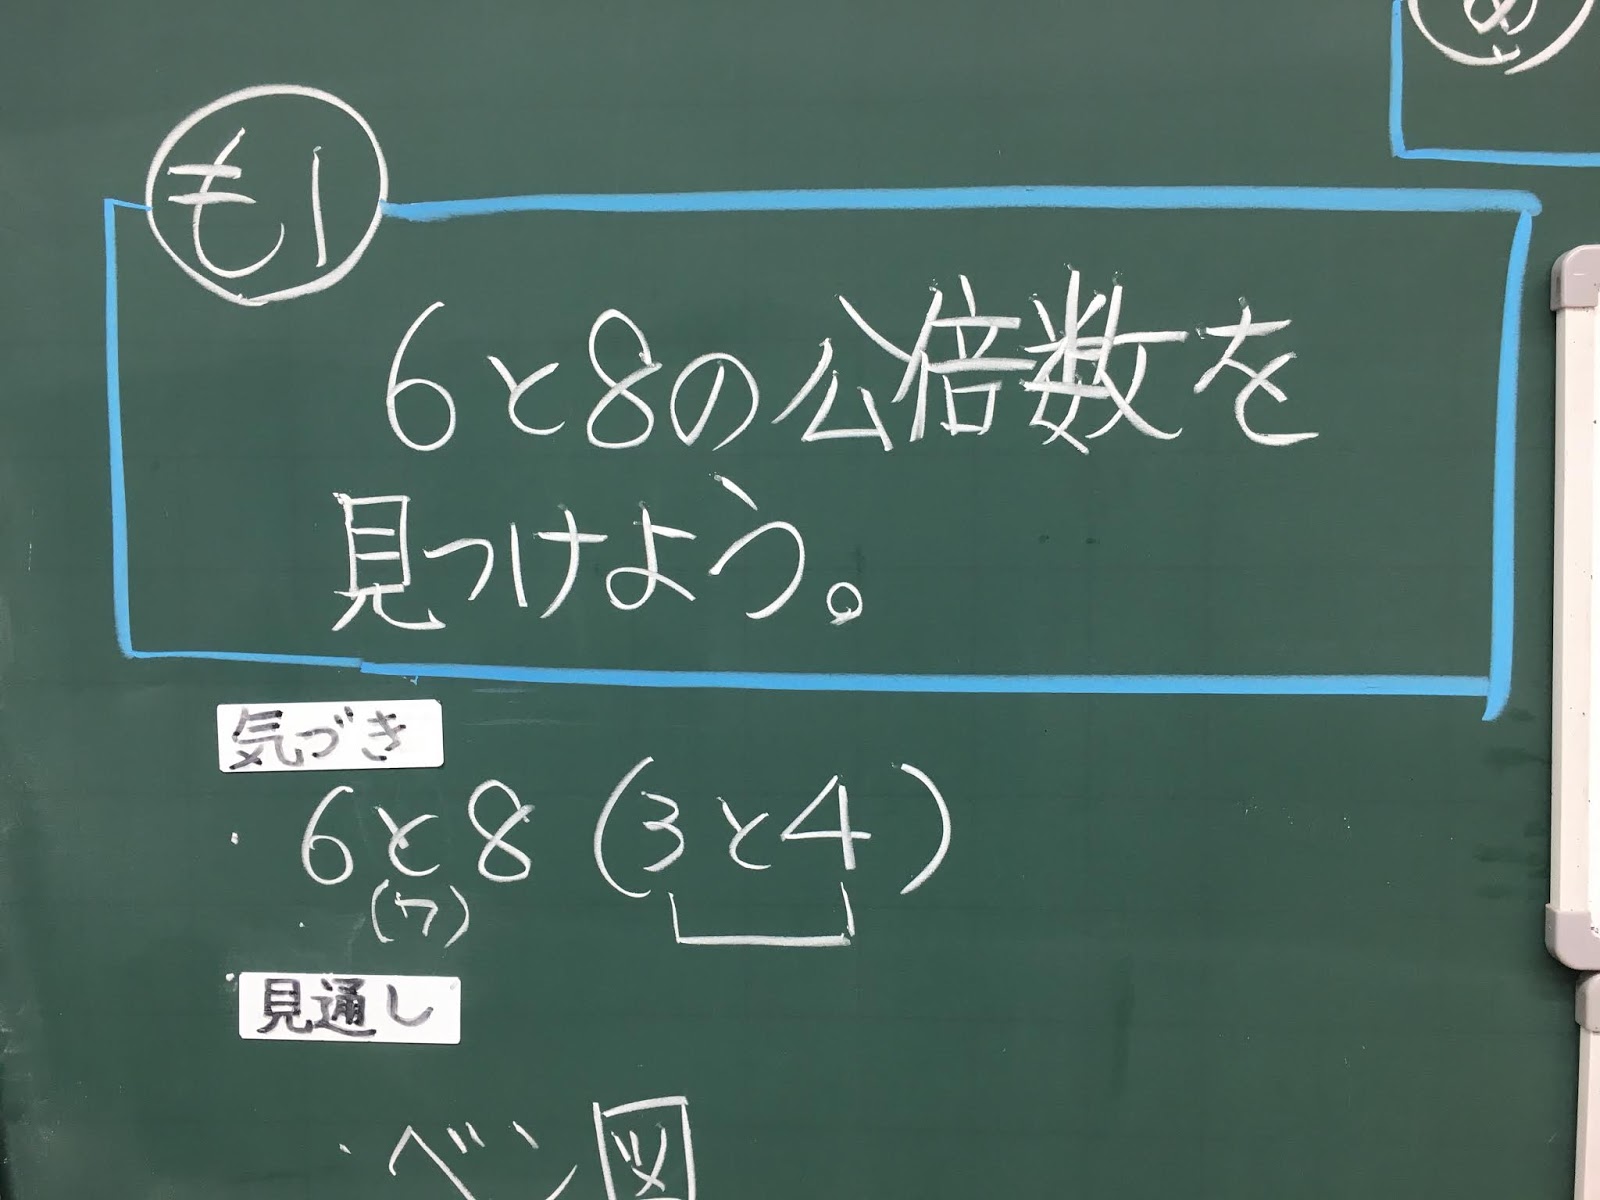 め
も1
6と8の公倍数を
見つけよう。
気づき
・6と8(3と4)
(7)
見通し
・ベン図